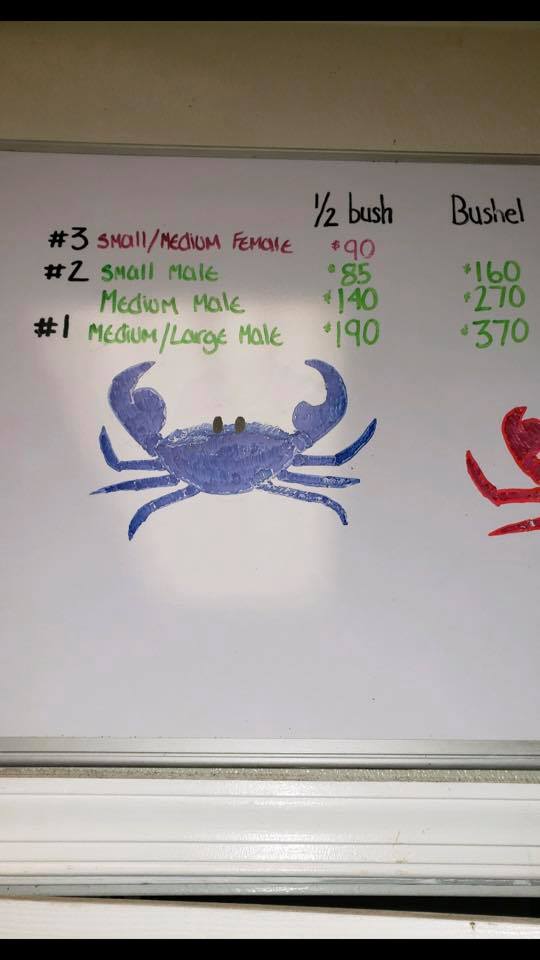 1/2 bush Bushel
#3 Small/Medium Female $90
#2 Small Male $85 $160
Medium Male $140 $270
#1 Medium/Large Male $190 $370